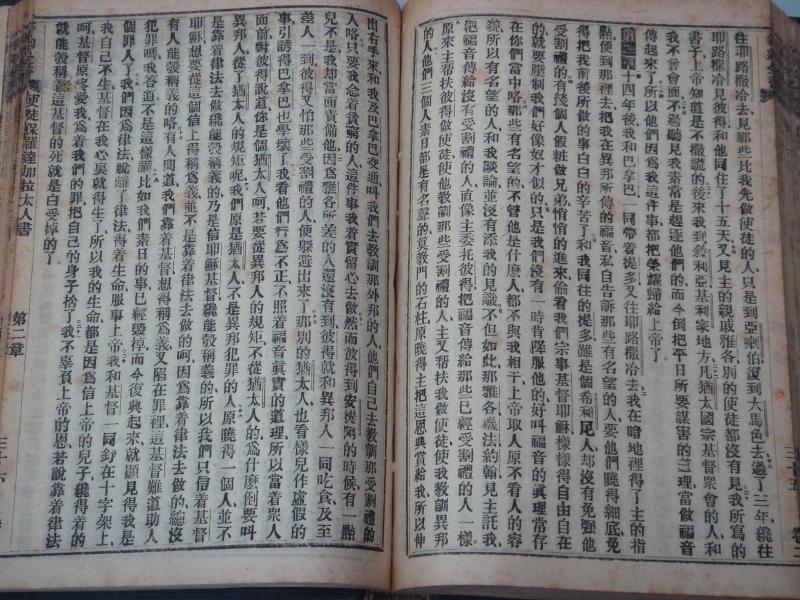 往耶路撒冷去見那些比我先做使徒的人只是到亞剌伯復到大馬色去過了三年纔往
耶路撒冷見彼得和他同住了十五天又見主的親戚雅各別的使徒都沒有見我所寫的
書子上帝知道是不撒謊的後來我到敘利亞基利家地方凡猶太國宗基督眾會的人和
我不曾會面不過聽見我素常是趕逐他們的而今倒把平日所要謀害的道理當做福音
傳起來了所以他們因為我這件事都把榮耀歸給上帝了
十四年後我和巴拿巴一同帶着提多又往耶路撒冷去我在暗地裡得了主的指
點便到那裡去把我在異邦所傳的福音私自告訴那些有名望的人要他們曉得細底免
得把我前後所做的事白白的辛苦了和我同往的提多雖是個希利尼人却沒有免強他
受割禮的有幾個人假粧做兄弟悄悄的進來偷看我們宗事基督耶穌樣樣得自由自在
的就要壓制我們好像奴才似的只是我們沒有一時肯降服他的好叫福音的真理常存
在你們當中咯那些有名望的人不管他是什麼人都不與我相干上帝取人原不看人的
貌所以有名望的人和我談論並沒有添我的見識不但如此那雅各磯法約翰見主託我
把福音傳給那些沒有受割禮的人直像主委托彼得把福音傳給那些已經受割禮的人一樣
原來主幫扶彼得做使徒使他教訓那些受割禮的人主又幫扶我做使徒使我教訓異邦
的人他們三個人素日都是有名聲的真教門的石柱原曉得主把這恩典賞給我所以伸
出右手來和我及巴拿巴交通叫我們去教訓那外邦的人他們自己去教訓那受割禮的
人咯只要我念着貧窮的人這件事我着實留心去做然而彼得到安提阿的時候有一點
兒不是我却當面責備他因為雅各所差的人還沒有到彼得就和異邦人一同吃食及至
差人一到彼得又怕那些受割禮的人便躲避出來了那別的猶太人也看樣兒作虛假的
事引誘得巴拿巴也學壞了我看他們行為不正不照着福音真實的道理所以當着眾人
面前對彼得說道你是個猶太人呵若要從異邦人的規矩不從猶太人的為什麼倒要叫
異邦人從了猶太人的規矩呢我們原是猶太人不是異邦犯罪的人原曉得一個人並不
是靠着律法去做纔能彀稱義的乃是信耶穌基督纔能彀稱義的所以我們只信着基督
耶穌想要從這個信上得稱為義並不是靠着律法去做的呵因為靠着律法去做的總沒
有人能彀稱義的咯有人問道我們靠着基督想得稱為義又陷在罪裡這基督難道助人
犯罪嗎我答道不是這樣講比如我們素日的事已經毀掉而今復興起來就顯見得我是
個罪人了我們因為律法脫離了律法得着生命服事上帝我和基督一同釘在十字架上
我自己不生基督在我心裏就得生了所以我的生命都是因為信上帝的兒子纔得着的
呵基督原疼愛我為着我們的罪把自己的身子捨了我不辜負上帝的恩若說靠着律法
就能彀稱義這基督的死就是白受掉的了
使徒保羅達加拉太人書
第二章